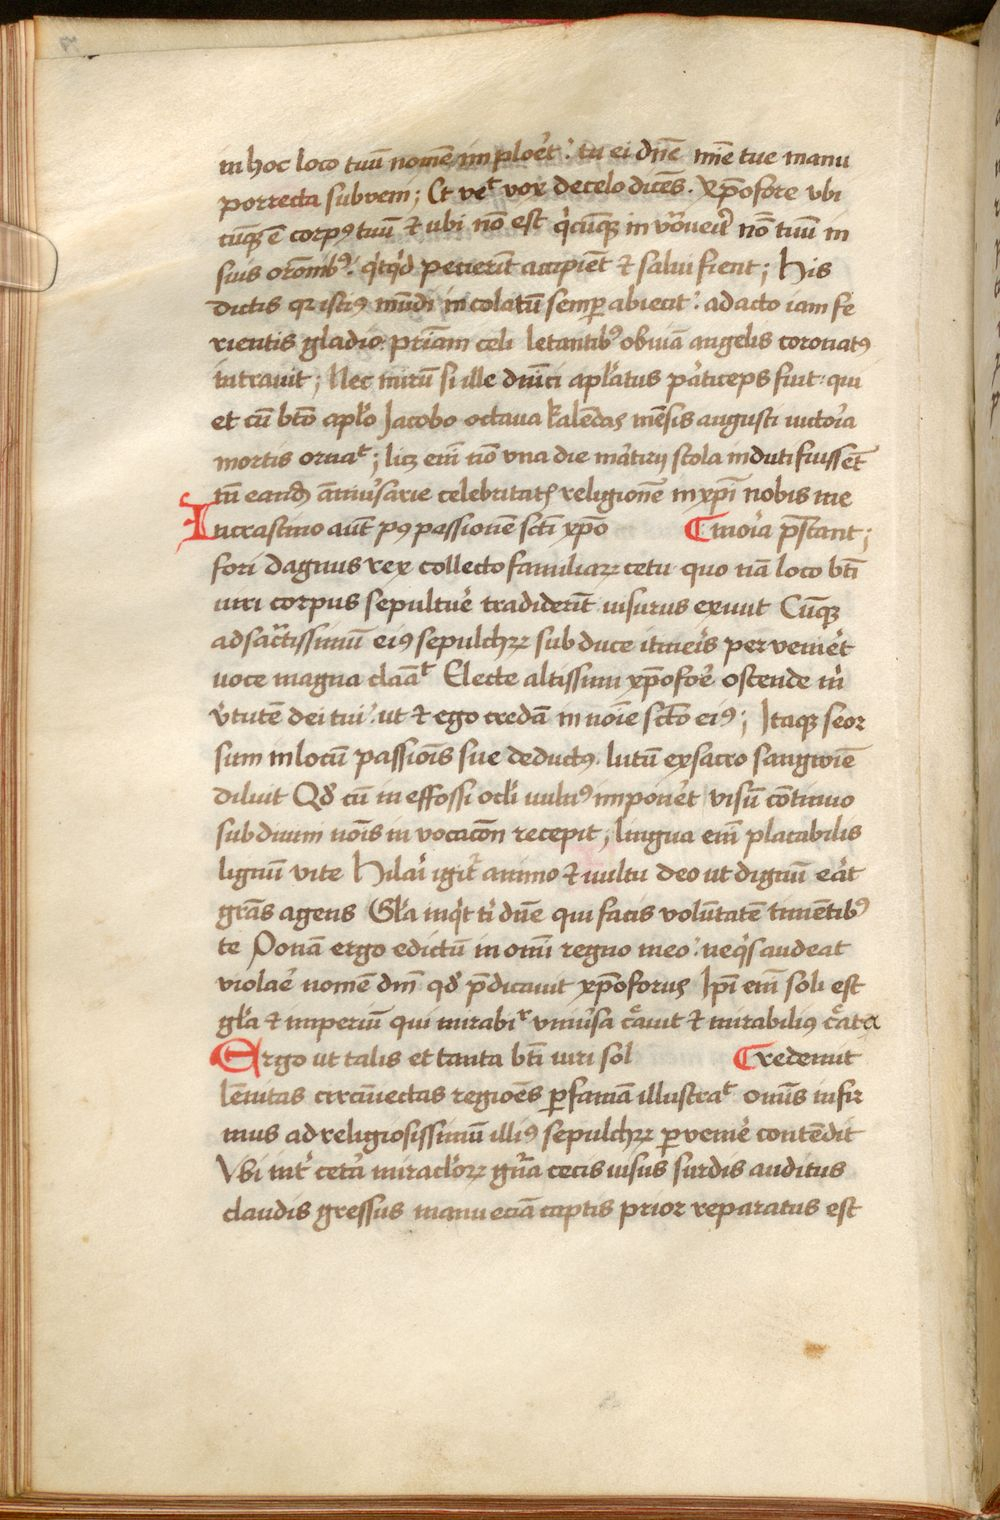 in hoc loco tuū nomē imploēt: tu ei dn̄e mīe tue manu
porrecta subveni; Et ve᷑ vox de celo dicēs. xp̄ofore vbi
cūqꝫ ē corpꝰ tuū ⁊ ubi nō est q̇cūqꝫ in noīe tuū in
suis orōnibꝰ: q̇tq̇d petierīt accipiēt ⁊ salui fient; His
dictis qꝛ istiꝰ mūdi in colatū semꝑ abiecit: adacto iam fe
rientis gladio: pr̄iam celi letantibꝰ obuiā angelis coronatꝰ
intrauit; Nec mirū si ille dn̄ici apl̄atus ꝑticeps fuit: qui
et cū bt̄o apl̄o Jacobo octaua kalēdas mēsis augusti uictoīa
mortis ornat᷑; licꝫ em̄ nō vna die mātirij stola induti fuissēt
tn̄ eandē āniuˀsarie celebritatꝭ religionē in xp̄i nobis me
In crastino aūt pꝰ passionē sct̄i xp̄o ¶ moīa p̄stant;
fori dagnus rex collecto familiarꝝ cetu quo nā loco bt̄i
uiri corpus sepultuē tradiderīt uisurus exiuit Cūqꝫ
ad sāctissimū eiꝰ sepulchrꝝ sub duce itineīs ꝑ venieˀt
uoce magna clāa᷑ Electe altissimi xp̄ofoē ostende m̄
v̄tutē dei tui: ut ⁊ ego credā in noīe scō eiꝰ; Itaqꝫ seor
sum in locū passiōis sue deductꝰ. lutū ex sacro sanguiē
diluit Qd̄ cū in effossi ocl̄i uultꝰ imponeˀt visū cōtinuo
sub diuini noīs in vocacōn recepit, lingua em̄ placabilis
lignū vite Hilaˀi igit᷑ animo ⁊ uultu deo ut dignū eāt
grās agens Gl̄a inq̇t t̄i dn̄e qui facis volūtatē timētibꝰ
te Ponā ergo edictū in omī regno meo: neq̇s audeat
violaˀe nomē dm̄ qd̄ p̄dicauit xp̄oforus Ip̄i em̄ soli est
gl̄a ⁊ imperiū qui mirabiˀr vniuˀsa cˀauit ⁊ mirabiliꝰ cˀata
Ergo ut talis et tanta bt̄i uiri sol ¶ Credenuit
lēnitas circūiectas regioēs ꝑ famā illustra᷑ om̄s infir
mus ad religiosissimū illiꝰ sepulchrꝝ ꝑ venieˀ contēdit
Vbi int̄ cetˀa miracl̄oꝝ gn̄a cecis uisus surdis auditus
claudis gressus manu eciā captis prior reparatus est